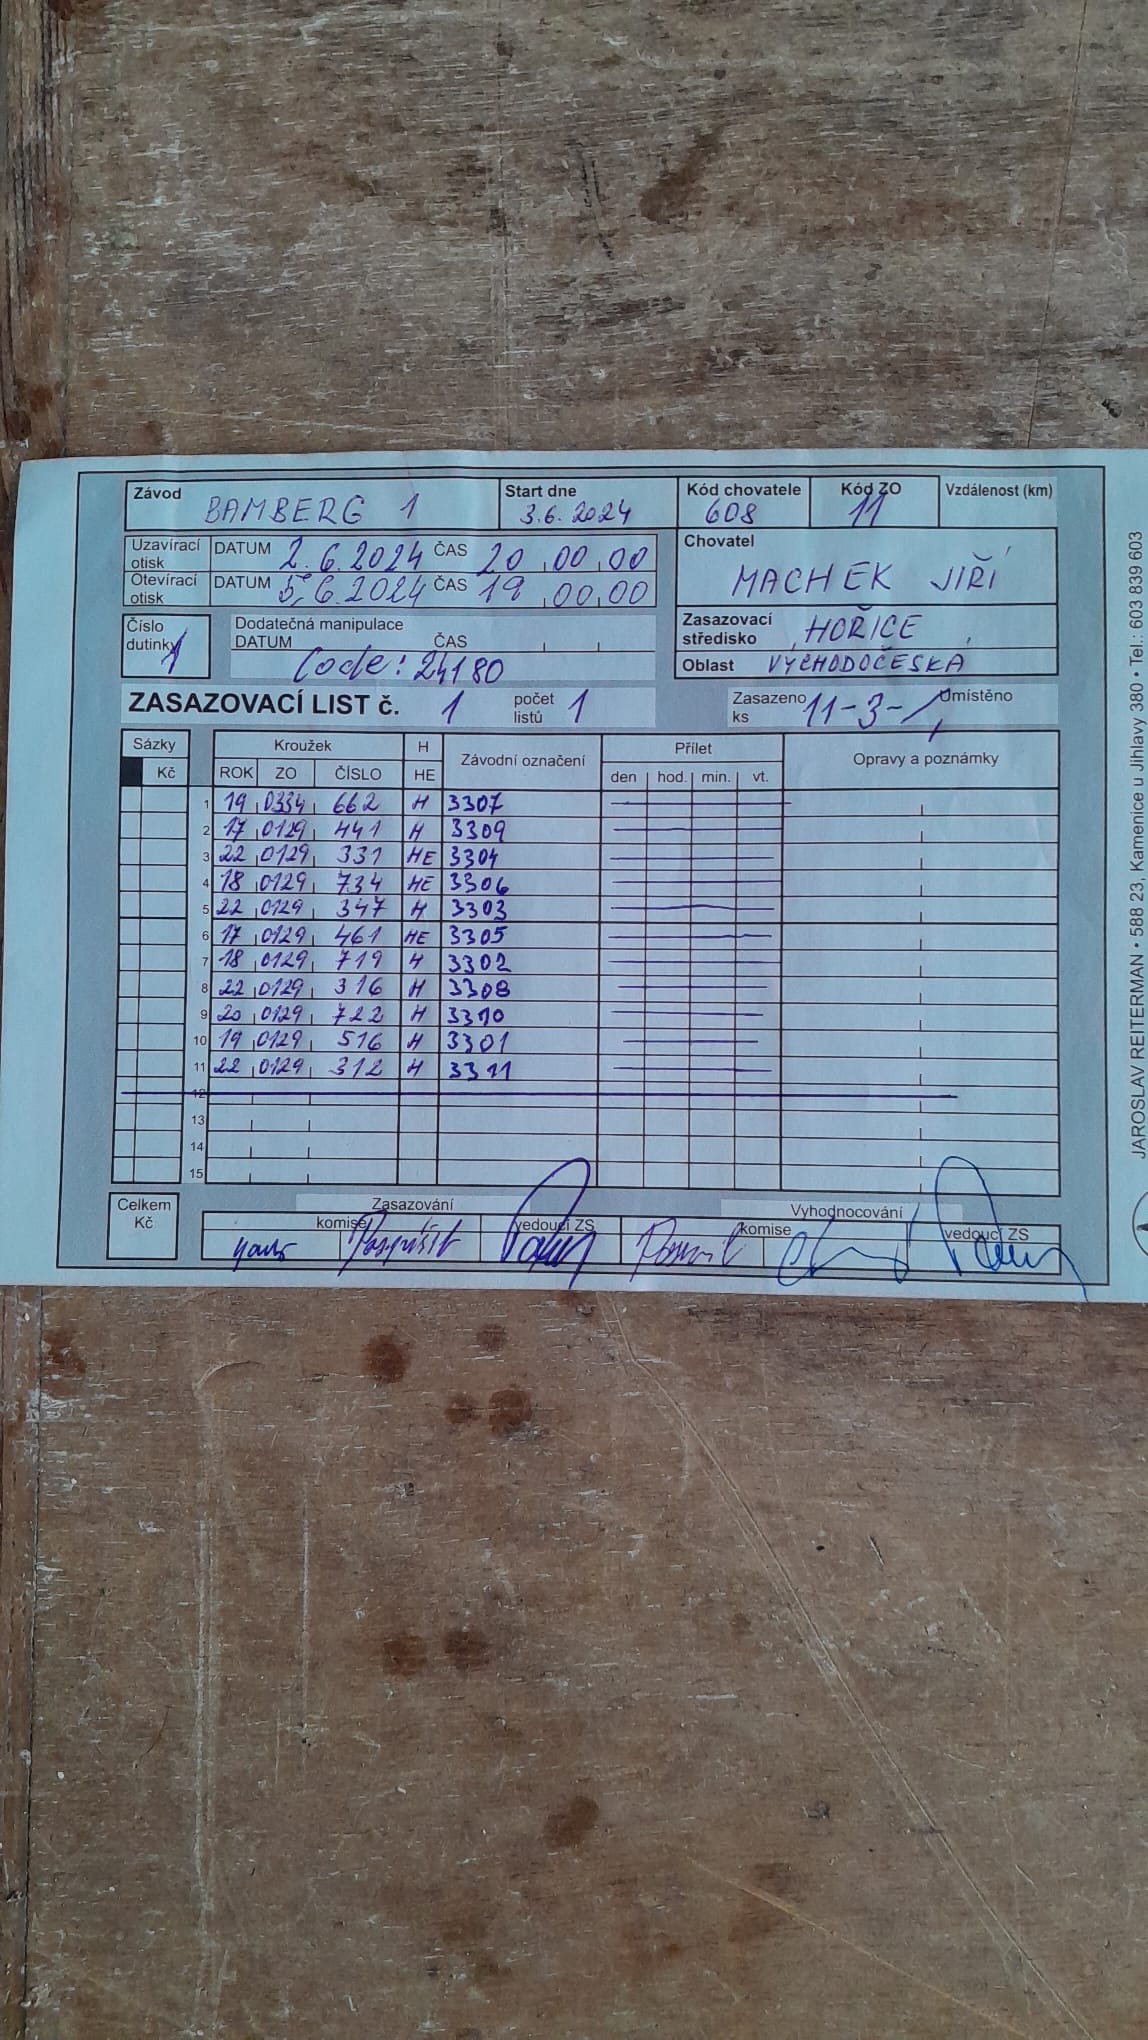 Závod BAMBERG 1 Start dne 3.6.2024 Kód chovatele 608 Kód ZO 11 Vzdálenost (km)
Uzavírací otisk DATUM 2.6.2024 ČAS 20,00,00
Otevírací otisk DATUM 5.6.2024 ČAS 19,00,00
Chovatel
MACHEK JIŘÍ
Číslo dutinky 1
Dodatečná manipulace
DATUM ČAS
Code: 24180
Zasazovací středisko HOŘICE
Oblast VÝCHODOČESKÁ
ZASAZOVACÍ LIST č. 1 počet listů 1 Zasazeno ks 11-3- Umístěno
Sázky Kroužek H Závodní označení Přílet Opravy a poznámky
Kč ROK ZO ČÍSLO HE den hod. min. vt.
1 19 0334 662 H 3307
2 17 0129 441 H 3309
3 22 0129 331 HE 3304
4 18 0129 734 HE 3306
5 22 0129 347 H 3303
6 17 0129 461 HE 3305
7 18 0129 719 H 3302
8 22 0129 316 H 3308
9 20 0129 722 H 3310
10 19 0129 516 H 3301
11 22 0129 312 H 3311
12
13
14
15
Celkem Kč
Zasazování Vyhodnocování
komise vedoucí ZS komise vedoucí ZS
JAROSLAV REITERMAN • 588 23, Kamenice u Jihlavy 380 • Tel.: 603 839 603